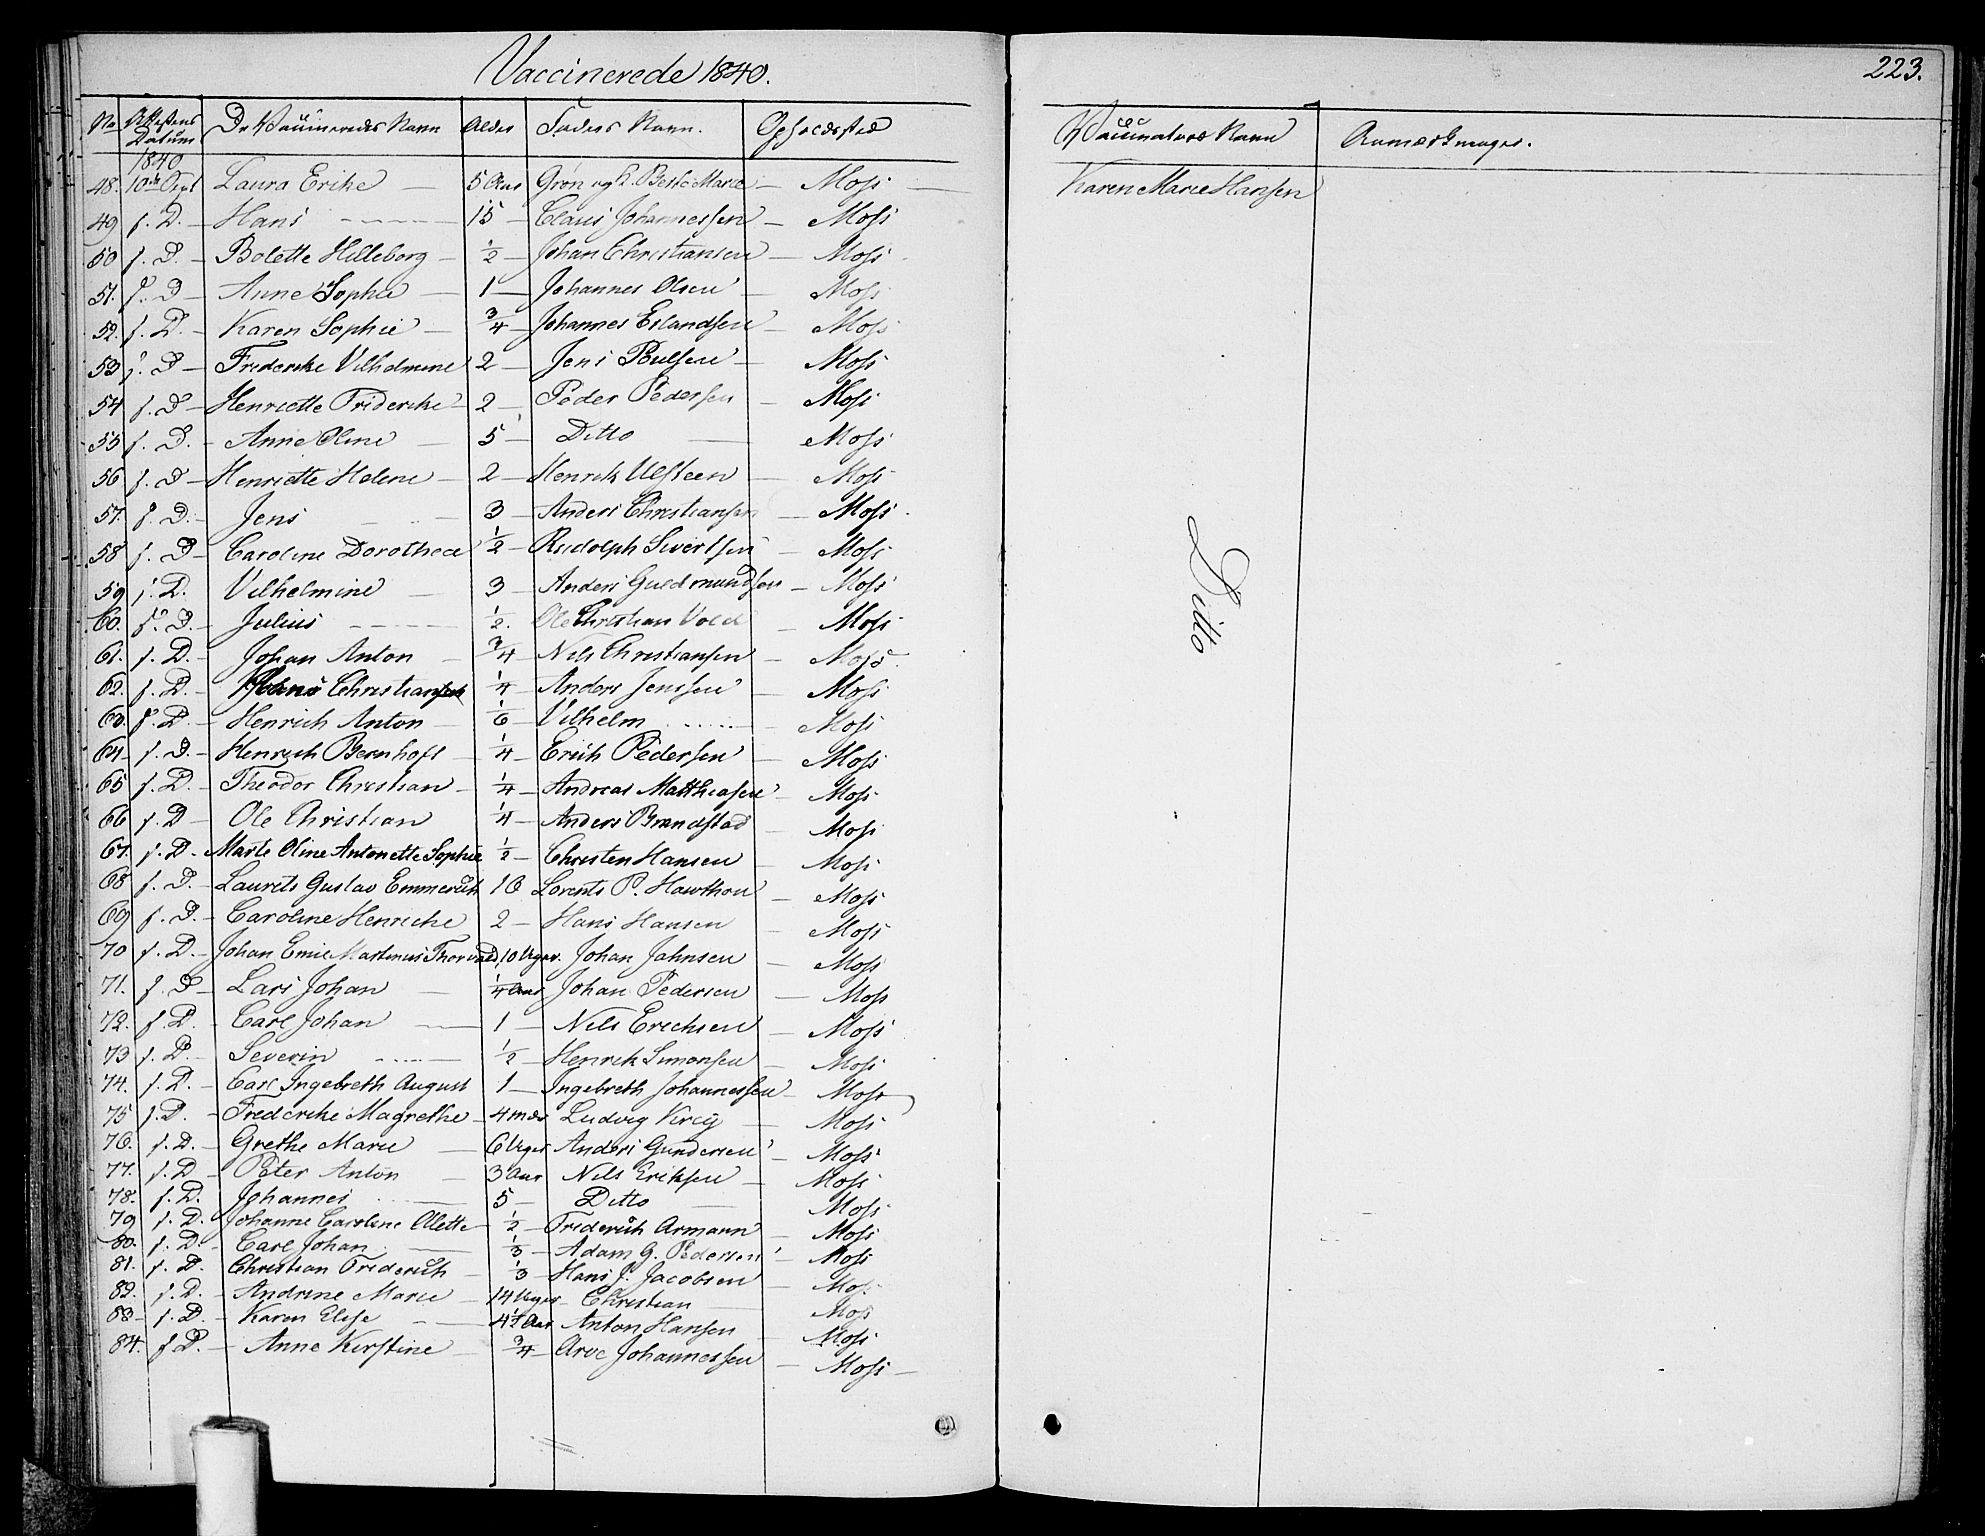 Vaccinerede 1840.
223.
No Attestens Datum De Vaccineredes Navn Alder Faders Navn. Opholdssted Vaccinateurs Navn Anmærkninger.
1840
48. 10de Sept Laura Erike 5 Aar Grøn og Marie Moss Karen Marie Hansen
49 f. D. Hans 15 Claus Johannessen Moss
50 f. D. Bolette Hilleborg 1/2 Johan Christiansen Moss
51. f. D Anne Sophie 1 Johannes Olsen Moss
52. f. D. Karen Sophie 3/4 Johannes Erlandsen Moss
53 f. D Frederike Vilhelmine 2 Jens Poulsen Moss
54 f. D Henriette Friderike 2 Peder Pedersen Moss
55 f. D. Anne Oline 5 Ditto Moss
56 f. D Henriette Helene 2 Henrik Ulsteen Moss
57. f. D. Jens 3 Anders Christiansen Moss
58 f. D Caroline Dorothea 1/2 Rudolph Sivertsen Moss
59 f. D. Vilhelmine 3 Anders Guldmundsen Moss
60. f. D. Julius 1/2. Ole Christian Vold Moss
61. f. D. Johan Anton 3/4 Nils Christiansen Moss
62. f. D. Christian 1/4 Anders Jenssen Moss
63. f. D Henrich Anton 1/6 Vilhelm Moss
64 f. D. Henrich Bernhoft 1/4 Erich Pedersen Moss
65 f. D. Theodor Christian 1/4 Andreas Matthiasen Moss
66 f. D Ole Christian 1/4 Anders Brandstad Moss
67. f. D. Marte Oline Antonette Sophie 1/2 Christen Hansen Moss
68 f. D. Laurits Gustav Emmerich 16 Lorents P. Hawthon Moss
69 f. D. Caroline Henriche 2 Hans Hansen Moss
70 f. D. Johan Emil Martinus Thorvald 10 Uger. Johan Jahnsen Moss
71. f. D Lars Johan 1/4 Aar Johan Pedersen Moss
72. f. D. Carl Johan 1 Nils Erichsen Moss
73 f. D. Severin 1/2 Henrik Simonsen Moss
74. f. D. Carl Ingebreth August 1 Ingebreth Johannessen Moss
75 f. D. Frederike Magrethe 4 Ludvig Moss
76. f. D. Grethe Marie 6 Uger Anders Gundersen Moss
77. f. D Peter Anton 3 Aar Nils Eriksen Moss
78. f. D. Johannes 5 Ditto Moss
79 f. D. Johanne Caroline Olette 1/2 Friderich Armann Moss
80. f. D. Carl Johan 1/3 Adam G. Pedersen Moss
81. f. D. Christian Friderich 1/3 Hans J. Jacobsen Moss
82. f. D. Andrine Marie 14 Uger Christian Moss
83 f. D. Karen Elise 4 1/2 Aar Anton Hansen Moss
84. f D. Anne Kirstine 3/4 Arve Johannessen Moss
Ditto